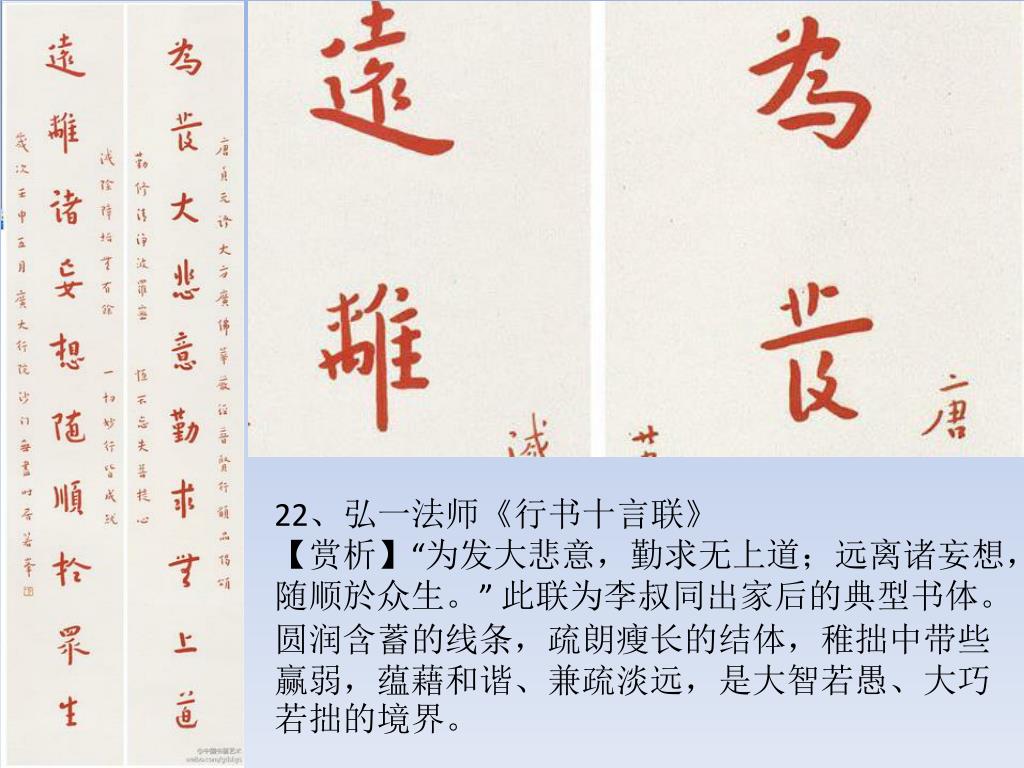 唐貞元譯大方廣佛華嚴經普賢行願品偈頌
為發大悲意勤求無上道
勤修清淨波羅蜜 恆不忘失菩提心
滅除障垢無有餘 一切妙行皆成就
遠離諸妄想隨順於眾生
歲次壬申五月 廣大行院沙門
@中國書畫藝術
唐
為發
滅
遠離
22、弘一法师《行书十言联》
【赏析】“为发大悲意，勤求无上道；远离诸妄想，
随顺於众生。” 此联为李叔同出家后的典型书体。
圆润含蓄的线条，疏朗瘦长的结体，稚拙中带些
赢弱，蕴藉和谐、兼疏淡远，是大智若愚、大巧
若拙的境界。